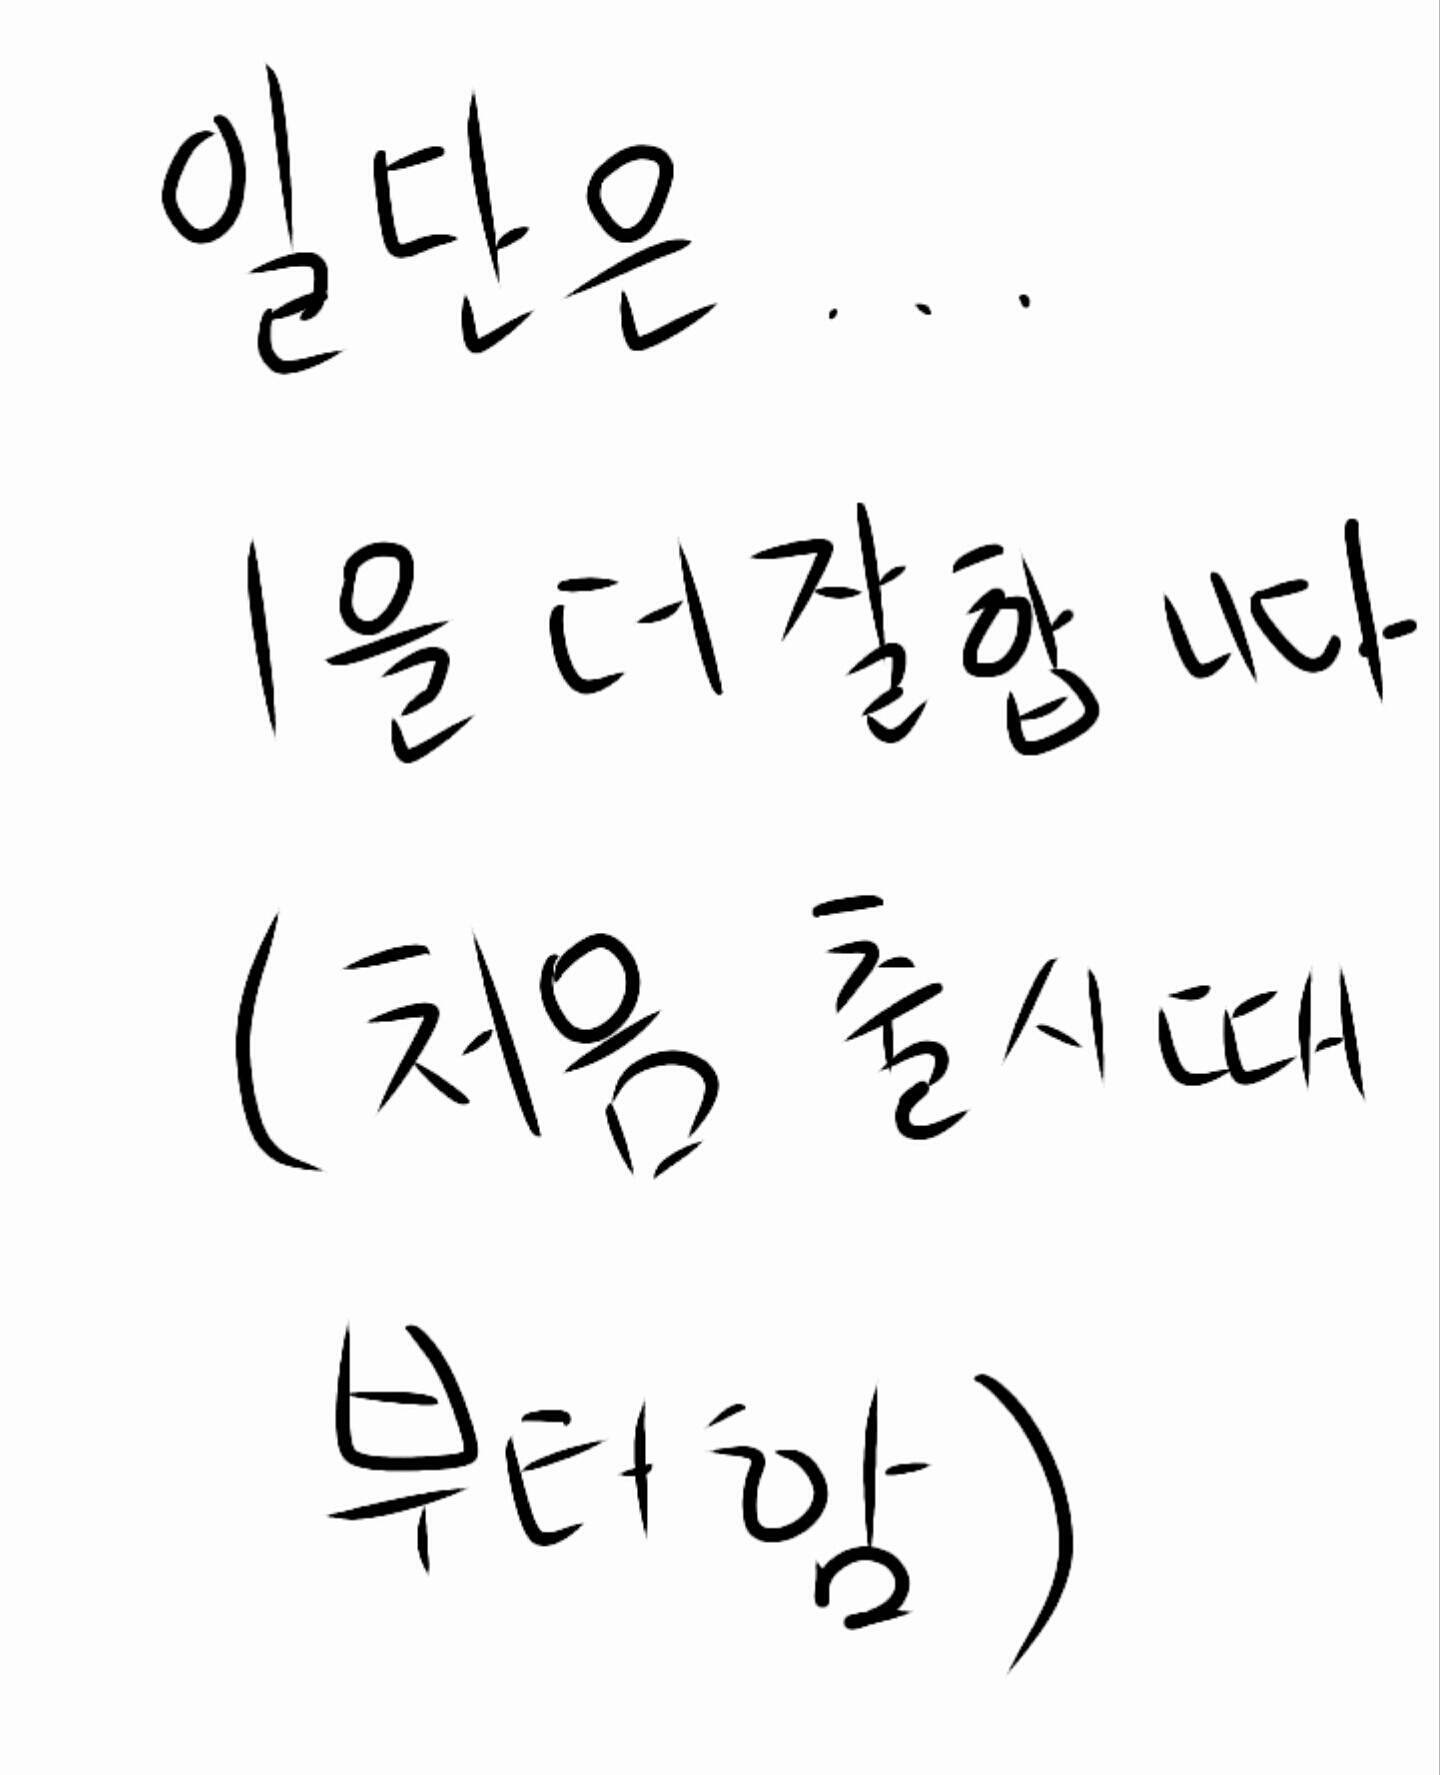 일단은...
1을 더 잘합니다
(처음 출시때
부터함)